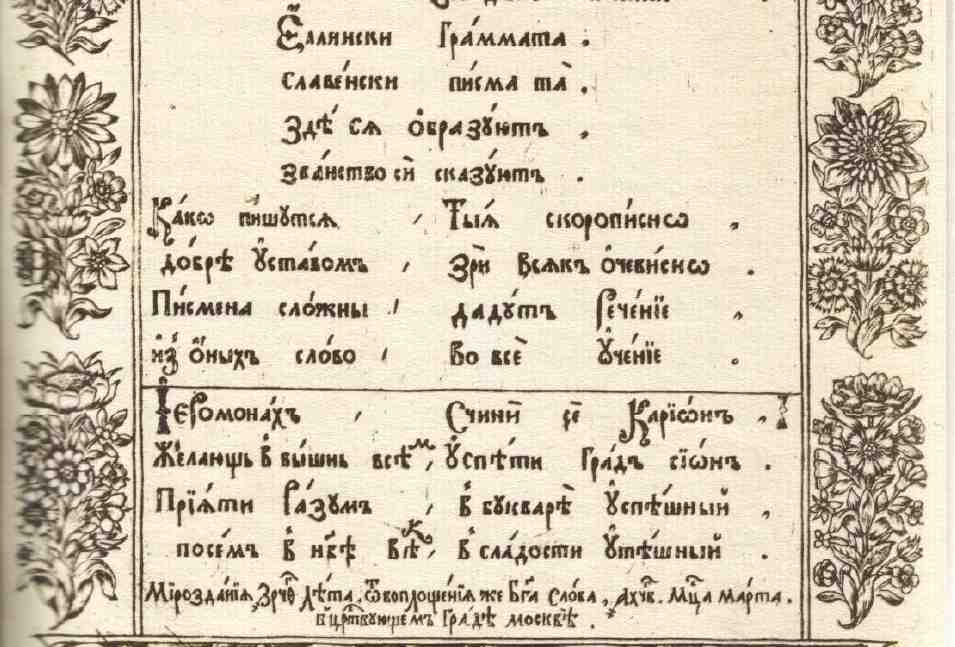 Е҆́ллински Гра́ммата .
Славе́нски пи́сма та̀ .
Здѣ́ сѧ ѻ҆бразꙋ́ютъ ,
зва́нство си́ сказꙋ́ютъ .
Ка́кѡ пи́шутсѧ , Тыѧ̀ скоропи́снѡ ,
до́брѣ ᲂу҆ста́вомъ , Зрѝ Всѧкъ ѻ҆чеви́снѡ .
Пи́смена сло́жны , даду́тъ Рече́нїе ,
и҆з̾ ѻ҆́ныхъ сло́во , Во всѐ ᲂу҆че́нїе .
І҆еромона́хъ , Счинѝ сѐ Карїѡ́нъ ,
Жела́ющь в̾ вы́шнь всѣ́м , ᲂу҆спѣ́ти Гра́дъ сїѡ́нъ .
Прїѧ́ти Ра́зумъ , в̾ букварѣ̀ ᲂу҆спѣ́шный ,
посе́мъ в̾ нб҃ѣ вѣ́к , в̾ сла́дости ᲂу҆тѣ́шный .
Мїрозда́нїѧ ҂ЗРЧѲ Лѣ́та . Ѿ воплоще́нїѧ же Бг҃а Сло́ва , ҂АХЧВ . Мц҃а марта .
в̾ црⷭ҇твующемъ Гра́дѣ москвѣ̀ .